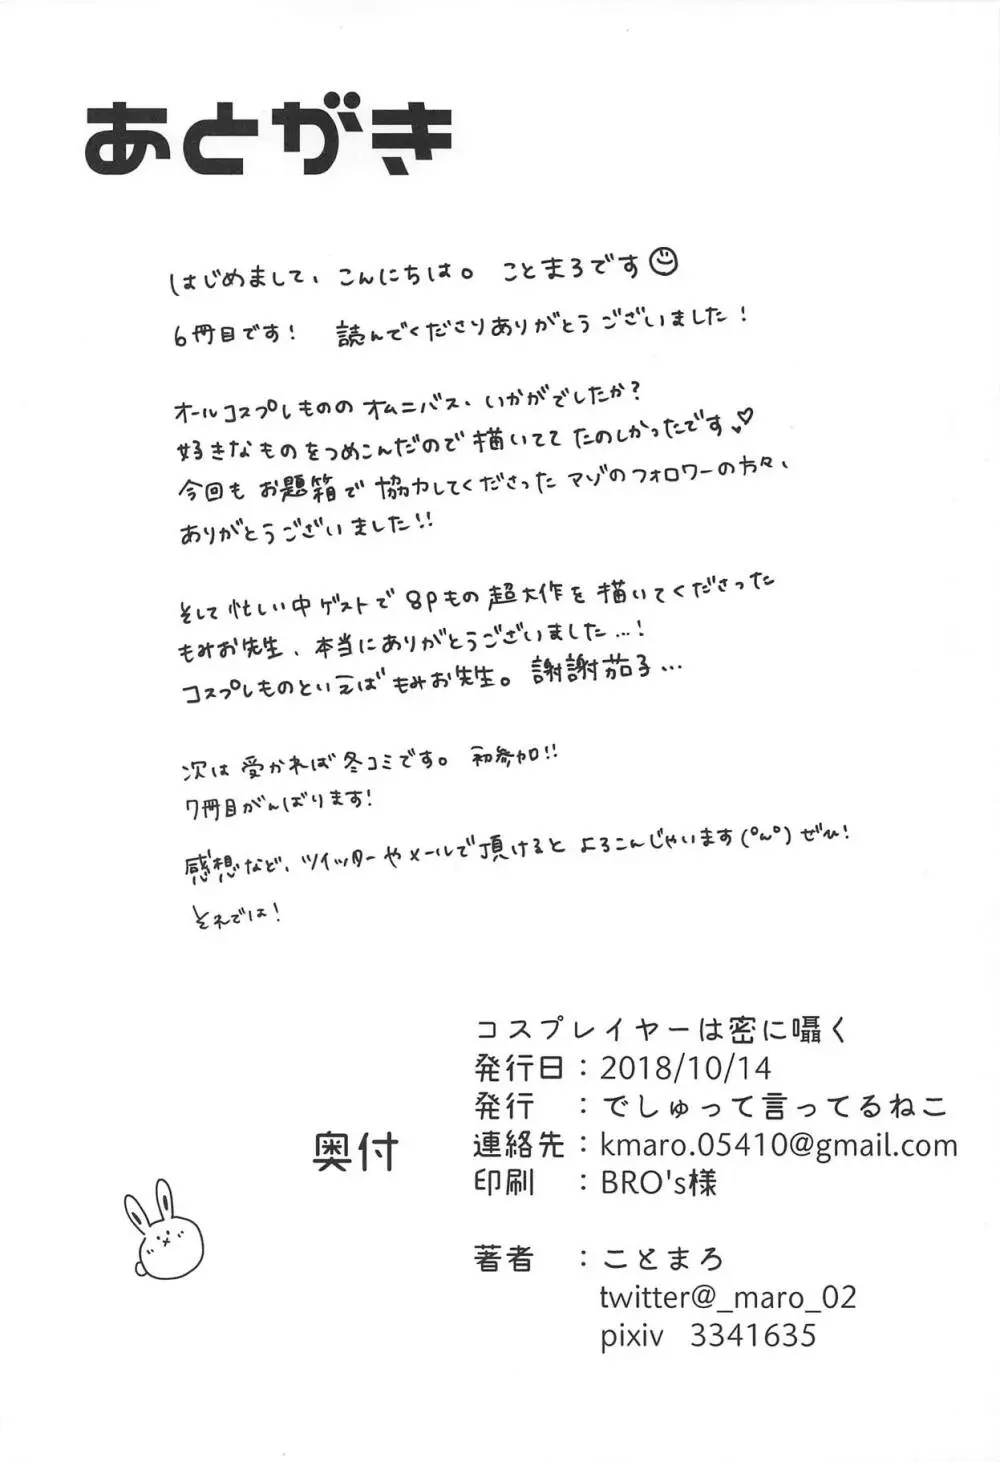 あとがき
はじめまして、こんにちは。 ことまろです
6冊目です! 読んでくださりありがとうございました!
オールコスプレもののオムニバス、いかがでしたか?
好きなものをつめこんだので描いててたのしかったです♥
今回もお題箱で協力してくださったマゾのフォロワーの方々、
ありがとうございました!!
そして忙しい中ゲストで8Pもの超大作を描いてくださった
もみお先生、本当にありがとうございました…!
コスプレものといえばもみお先生。謝謝茄子…
次は受かれば冬コミです。 初参加!!
7冊目がんばります!
感想など、ツイッターやメールで頂けるとよろこんじゃいます(°ω°)ぜひ!
それでは!
奥付
コスプレイヤーは密に囁く
発行日:2018/10/14
発行 :でしゅって言ってるねこ
連絡先:kmaro.05410@gmail.com
印刷 :BRO's様
著者 :ことまろ
twitter@_maro_02
pixiv 3341635